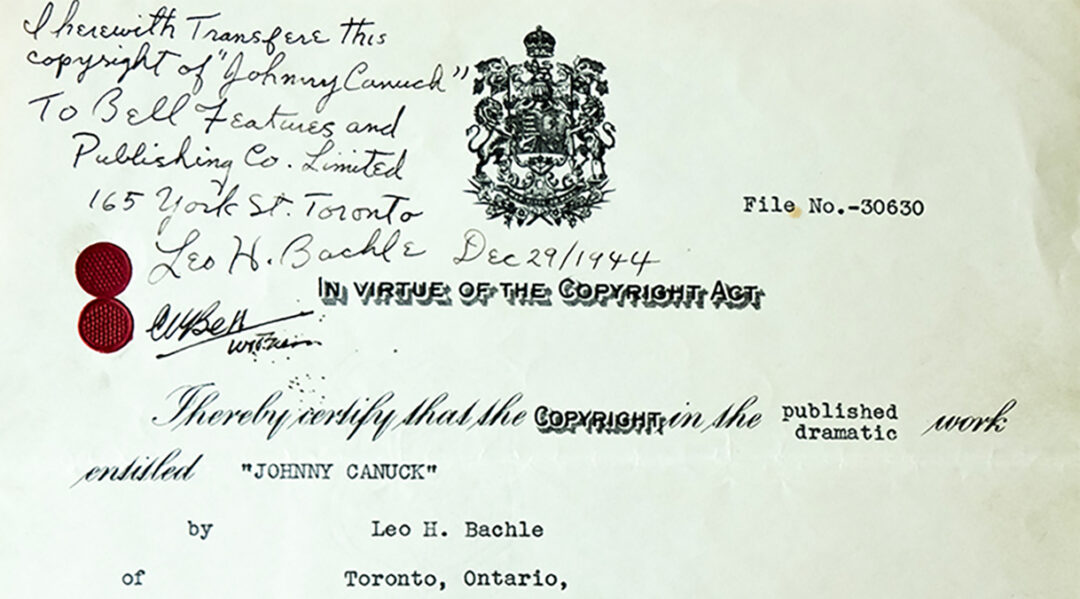 I herewith Transfere this
copyright of "Johnny Canuck"
To Bell Features and
Publishing Co. Limited
165 York St. Toronto
Leo H. Bachle Dec 29/1944
File No.-30630
IN VIRTUE OF THE COPYRIGHT ACT
I hereby certify that the COPYRIGHT in the published dramatic work
entitled "JOHNNY CANUCK"
by Leo H. Bachle
of Toronto, Ontario,